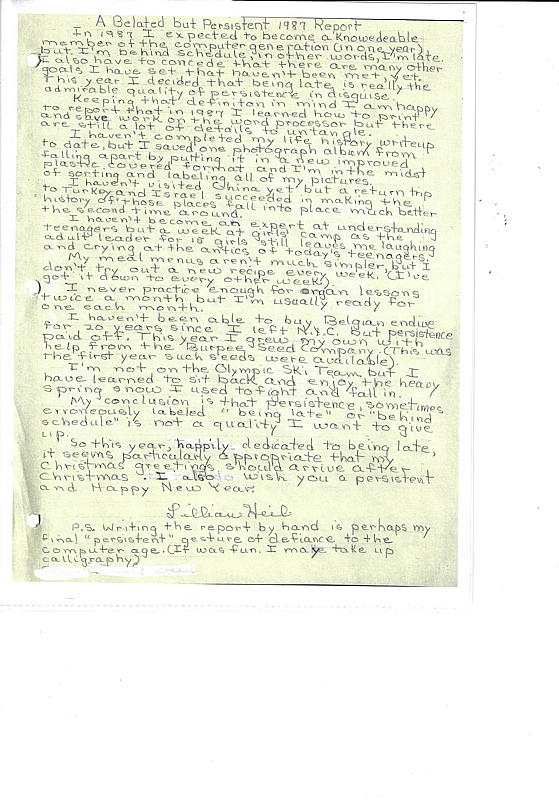 A Belated but Persistent 1987 Report
In 1987 I expected to become a Knowedeable
member of the computer generation (in one year)
but I'm behind schedule, in other words, I'm late.
I also have to concede that there are many other
goals I have set that haven't been met, yet.
This year I decided that being late is really the
admirable quality of persistence in disguise.
Keeping that definiton in mind I am happy
to report that in 1987 I learned how to print
and save work on the word processor but there
are still a lot of details to untangle.
I haven't completed my life history writeup
to date, but I saved one photograph album from
falling apart by putting it in a new improved
plastic covered format and I'm in the midst
of sorting and labeling all of my pictures.
I haven't visited China yet but a return trip
to Turkey and Israel succeeded in making the
history of those places fall into place much better
the second time around.
I haven't become an expert at understanding
teenagers but a week at girls' camp as the
adult leader for 18 girls still leaves me laughing
and crying at the antics of today's teenagers.
My meal menus aren't much simpler but I
don't try out a new recipe every week. (I've
got it down to every other week).
I never practice enough for organ lessons
twice a month but I'm usually ready for
one each month.
I haven't been able to buy Belgian endive
for 20 years since I left N.Y.C. but persistence
paid off. This year I grew my own with
help from the Burpee Seed Company. (This was
the first year such seeds were available).
I'm not on the Olympic Ski Team but I
have learned to sit back and enjoy the heavy
spring snow I used to fight and fall in.
My conclusion is that persistence, sometimes
erroneously labeled "being late" or "behind
schedule" is not a quality I want to give
up.
So this year, happily dedicated to being late,
it seems particularly appropriate that my
Christmas greetings should arrive after
Christmas. I also wish you a persistent
and Happy New Year.
Lillian Heil
P.S. Writing the report by hand is perhaps my
final "persistent" gesture of defiance to the
computer age. (It was fun. I may take up
calligraphy)